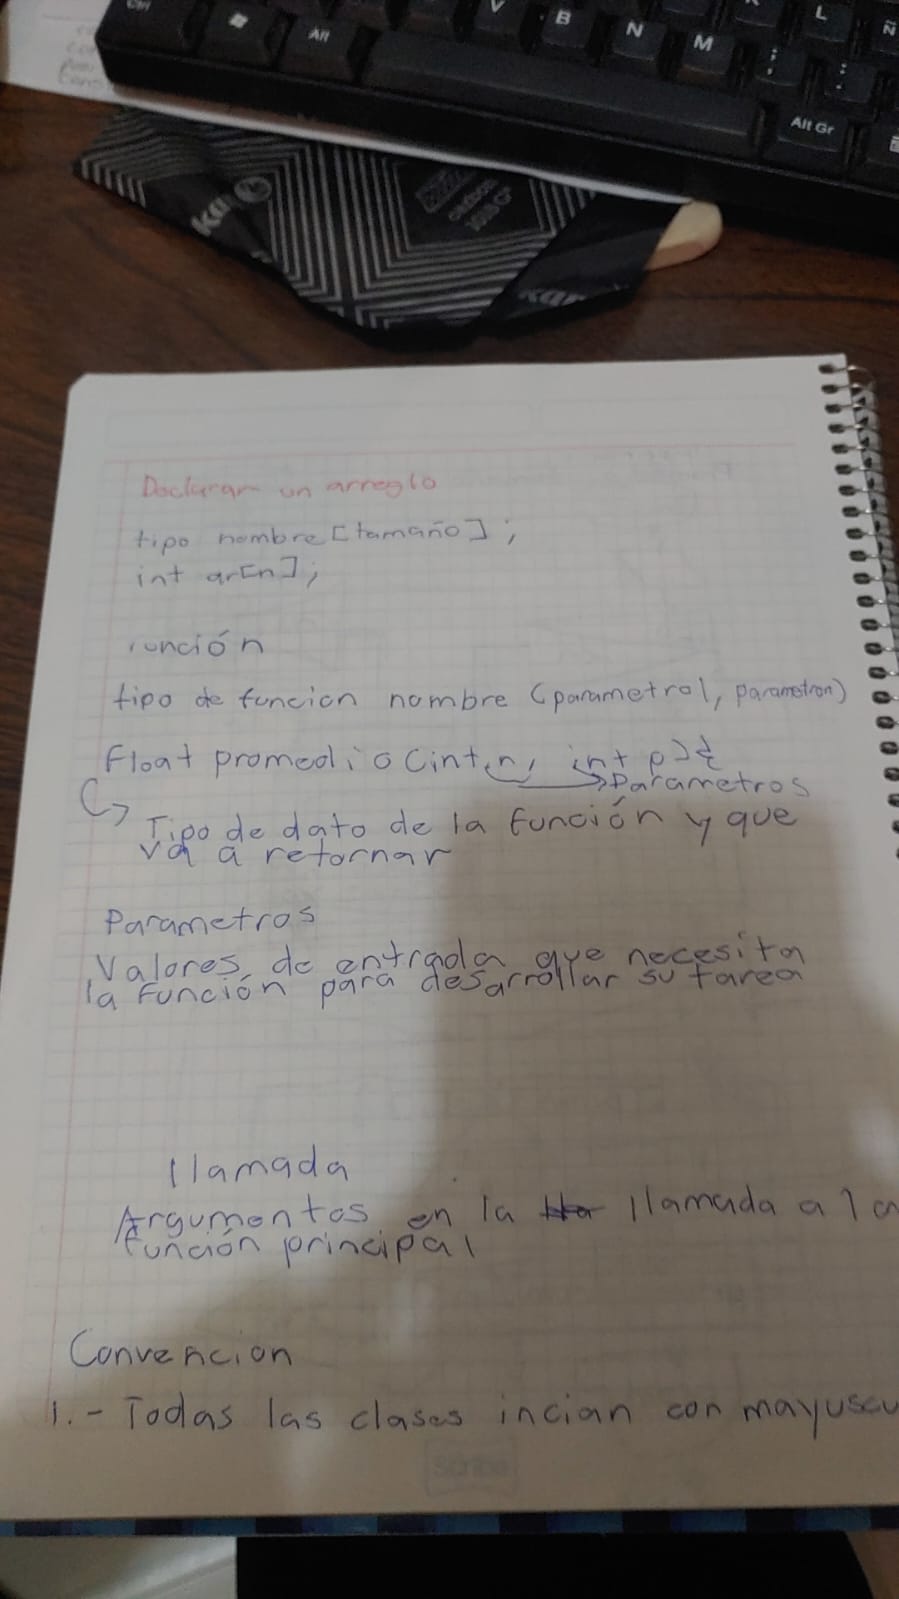 Ctrl
Alt
V
B
N
M
L
Ñ
;
,
:
.
Alt Gr
Declarar un arreglo
tipo nombre [tamaño];
int ar[n];
función
tipo de funcion nombre (parametro1, parametron)
Float promedio (int n, int p){
Parametros
Tipo de dato de la función y que
va a retornar
Parametros
Valores de entrada que necesita
la función para desarrollar su tarea
llamada
Argumentos en la llamada a la
función principal
Convencion
1.- Todas las clases incian con mayuscu
Scribe